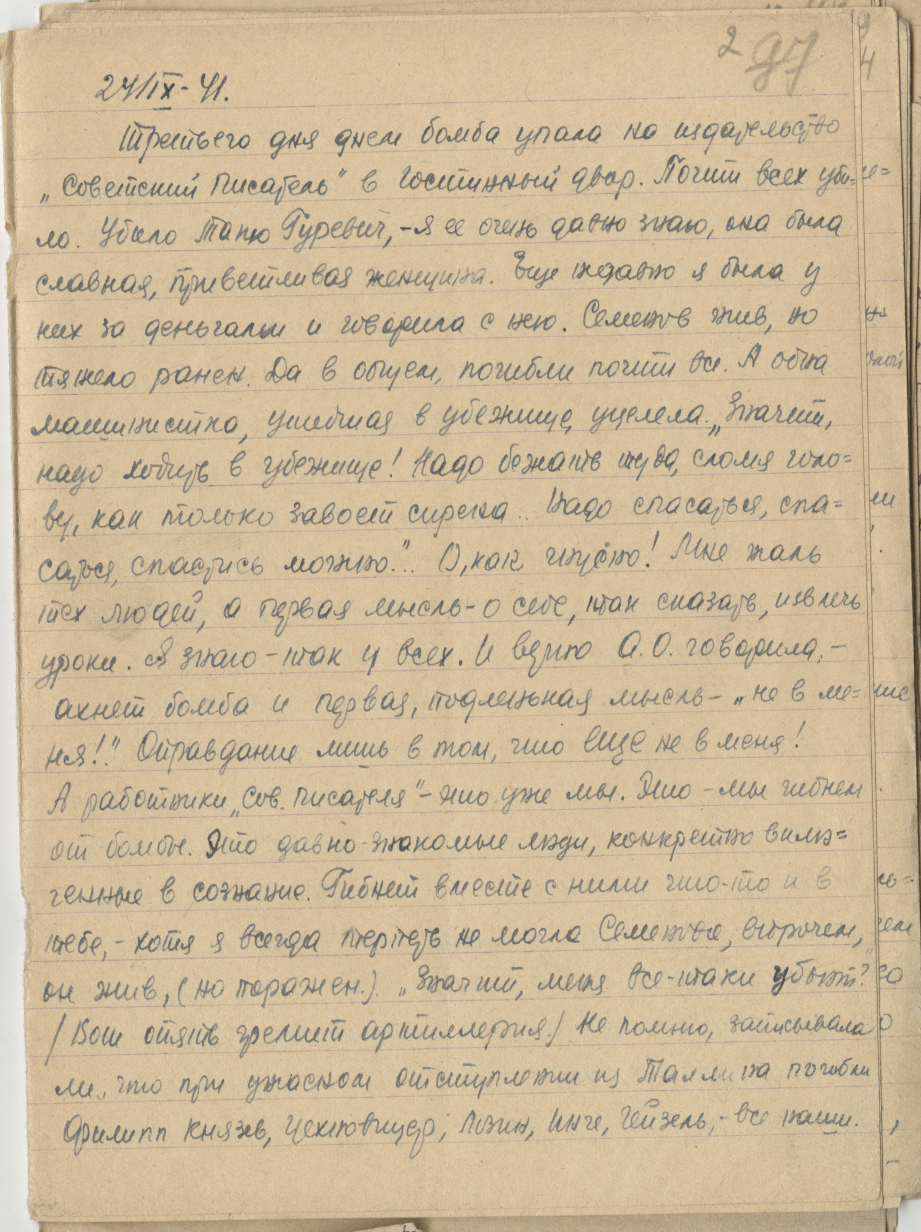 2 97
24/IX-41.
Третьего дня днем бомба упала на издательство
„Советский писатель" в Гостинный двор. Почти всех уби-
ло. Убило Таню Гуревич, - я ее очень давно знаю, она была
славная, приветливая женщина. Еще недавно я была у
них за деньгами и говорила с нею. Семенов жив, но
тяжело ранен. Да в общем, погибли почти все. А одна
машинистка, ушедшая в убежище, уцелела. „Значит,
надо ходить в убежище! Надо бежать туда, сломя голо=
ву, как только завоет сирена.. Надо спасаться, спа=
саться, спастись можно.".. О, как гнусно! Мне жаль
тех людей, а первая мысль - о себе, так сказать, извлечь
уроки. Я знаю - так у всех. И верно А.О. говорила, -
ахнет бомба и первая, подленькая мысль - „не в ме=
ня!." Оправдание лишь в том, что еще не в меня!
А работники „Сов. писателя" - это уже мы. Это - мы гибнем
от бомбы. Это давно-знакомые люди, конкретно вклю=
ченные в сознание. Гибнет вместе с ними что-то и в
тебе, - хотя я всегда терпеть не могла Семенова, впрочем,
он жив, (но поражен.) „Значит, меня все-таки убьют?"
/Вот опять гремит артиллерия./ Не помню, записывала
ли, что при ужасном отступлении из Таллина погибли
Филипп Князев, Цехновицер, Лозин, Инге, Гейзель, - все наши.